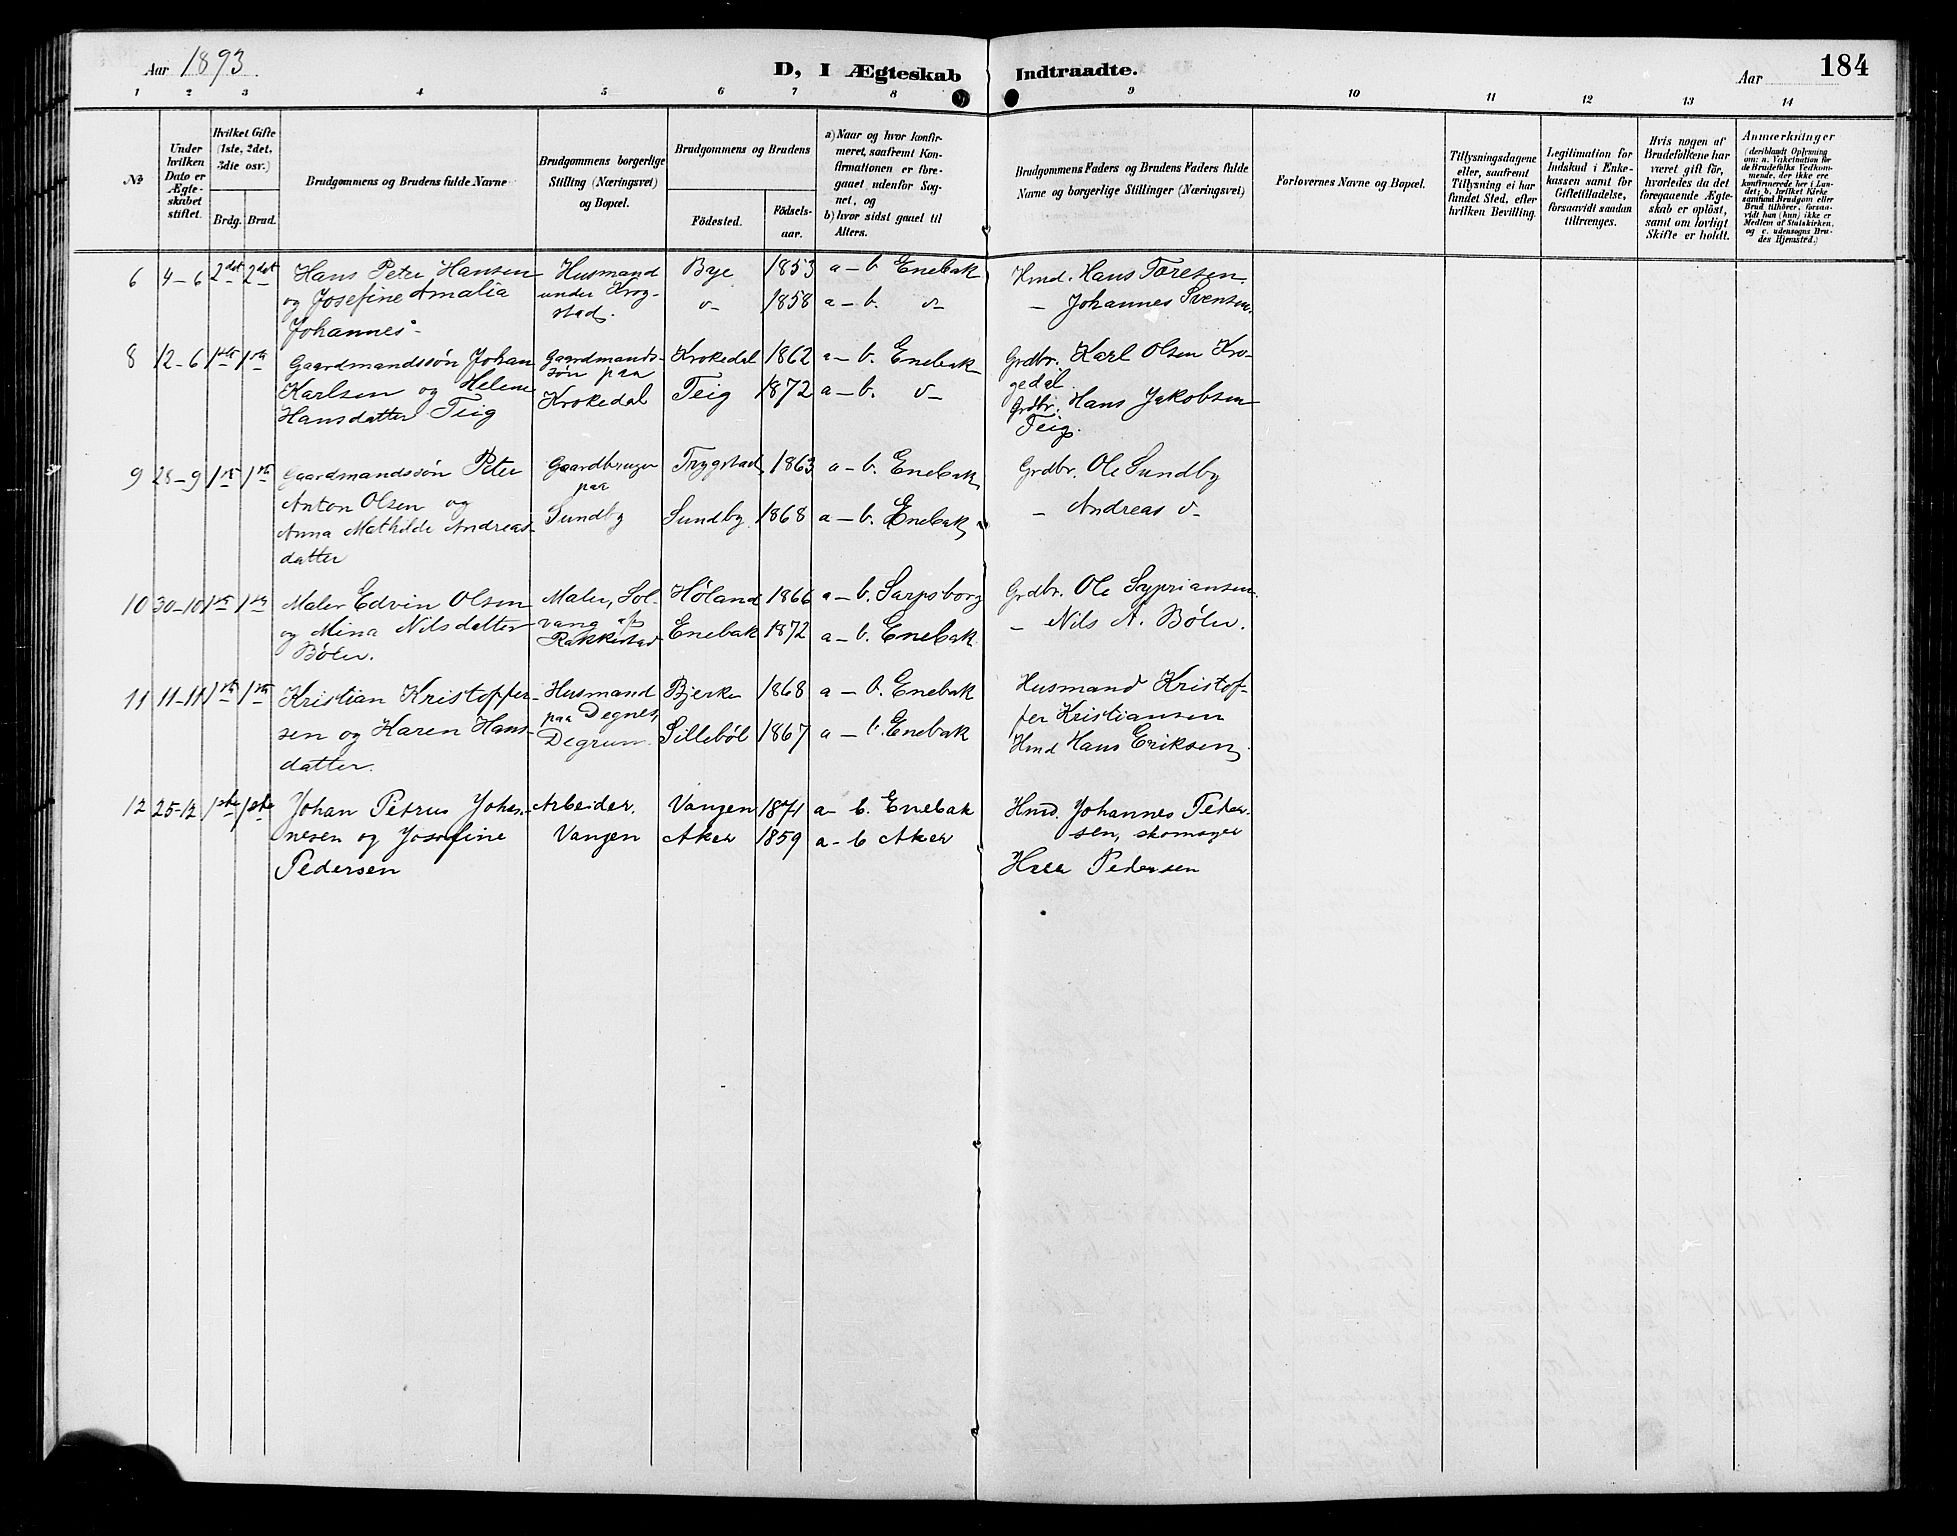 Aar 1893.
D, I Ægteskab Indtraadte.
Aar
184
1 2 3 4 5 6 7 8 9 10 11 12 13 14
№
Under hvilken Dato er Ægteskabet stiftet.
Hvilket Gifte (1ste, 2det, 3die osv.)
Brdg. Brud.
Brudgommens og Brudens fulde Navne
Brudgommens borgerlige Stilling (Næringsvei) og Bopæl.
Brudgommens og Brudens
Födested.
Födsels-aar.
a) Naar og hvor konfirmeret, saafremt Konfirmationen er foregaaet udenfor Sognet, og
b) hvor sidst gaaet til Alters.
Brudgommens Faders og Brudens Faders fulde Navne og borgerlige Stillinger (Næringsvei)
Forlovernes Navne og Bopæl.
Tillysningsdagene eller, saafremt Tillysning ei har fundet Sted, efter hvilken Bevilling.
Legitimation for Indskud i Enkekassen samt for Giftetilladelse, forsaavidt saadan tiltrænges.
Hvis nogen af Brudefolkene har været gift för, hvorledes da det foregaaende Ægteskab er oplöst, samt om lovligt Skifte er holdt.
Anmærkninger
(deriblandt Oplysning om: a. Vakcination for de Brudefolks Vedkommende, der ikke ere konfirmerede her i Landet; b. hvilket Kirkesamfund Brudgom eller Brud tilhörer, forsaavidt han (hun) ikke er Medlem af Statskirken, og c. udensogns Brudes Hjemsted.)
6 4–6 2det 2det Hans Peter Hansen Husmand Bye 1853 a–b. Enebak Hmd. Hans Toresen.
og Josefine Amalia under Krog- v– 1858 a–b. v– – Johannes Svensen.
Johannes- stad.
8 12–6 1ste 1ste Gaardmandssøn Johan Gaardmands- Krokedal 1862 a–b. Enebak Grdbr. Karl Olsen Kro-
Karlsen og Helene søn paa Teig 1872 a–b. v– gedal
Hansdatter Teig Krokedal Grdbr. Hans Jakobsen
Teig.
9 28–9 1ste 1ste Gaardmandssøn Peter Gaardbruger Trygstad 1863 a–b. Enebak Grdbr. Ole Sundby
Anton Olsen og paa
Anna Mathilde Andreas- Sundby Sundby 1868 a–b. Enebak – Andreas v–
datter
10 30–10 1ste 1ste Maler Edvin Olsen Maler, Sol- Høland 1866 a–b. Sarpsborg Grdbr. Ole Sypriansen.
og Mina Nilsdatter vang af Enebak 1872 a–b. Enebak – Nils A. Böler.
Böler. Rakkestad
11 11–11 1ste 1ste Kristian Kristoffer- Husmand Bjerke 1868 a–b. Enebak Husmand Kristof-
sen og Karen Hans- paa Degnes, Sillebøl 1867 a–b. Enebak fer Kristiansen
datter. Degrum. Hmd Hans Eriksen
12 25–12 1ste 1ste Johan Petrus Johan- Arbeider. Vangen 1871 a–b. Enebak Hmd. Johannes Peder-
nesen og Josefine Vangen Aker 1859 a–b Aker sen, skomager
Pedersen Pedersen